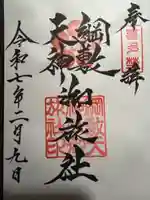 奉拝
綱敷
天神
御旅社
令和七年二月九日